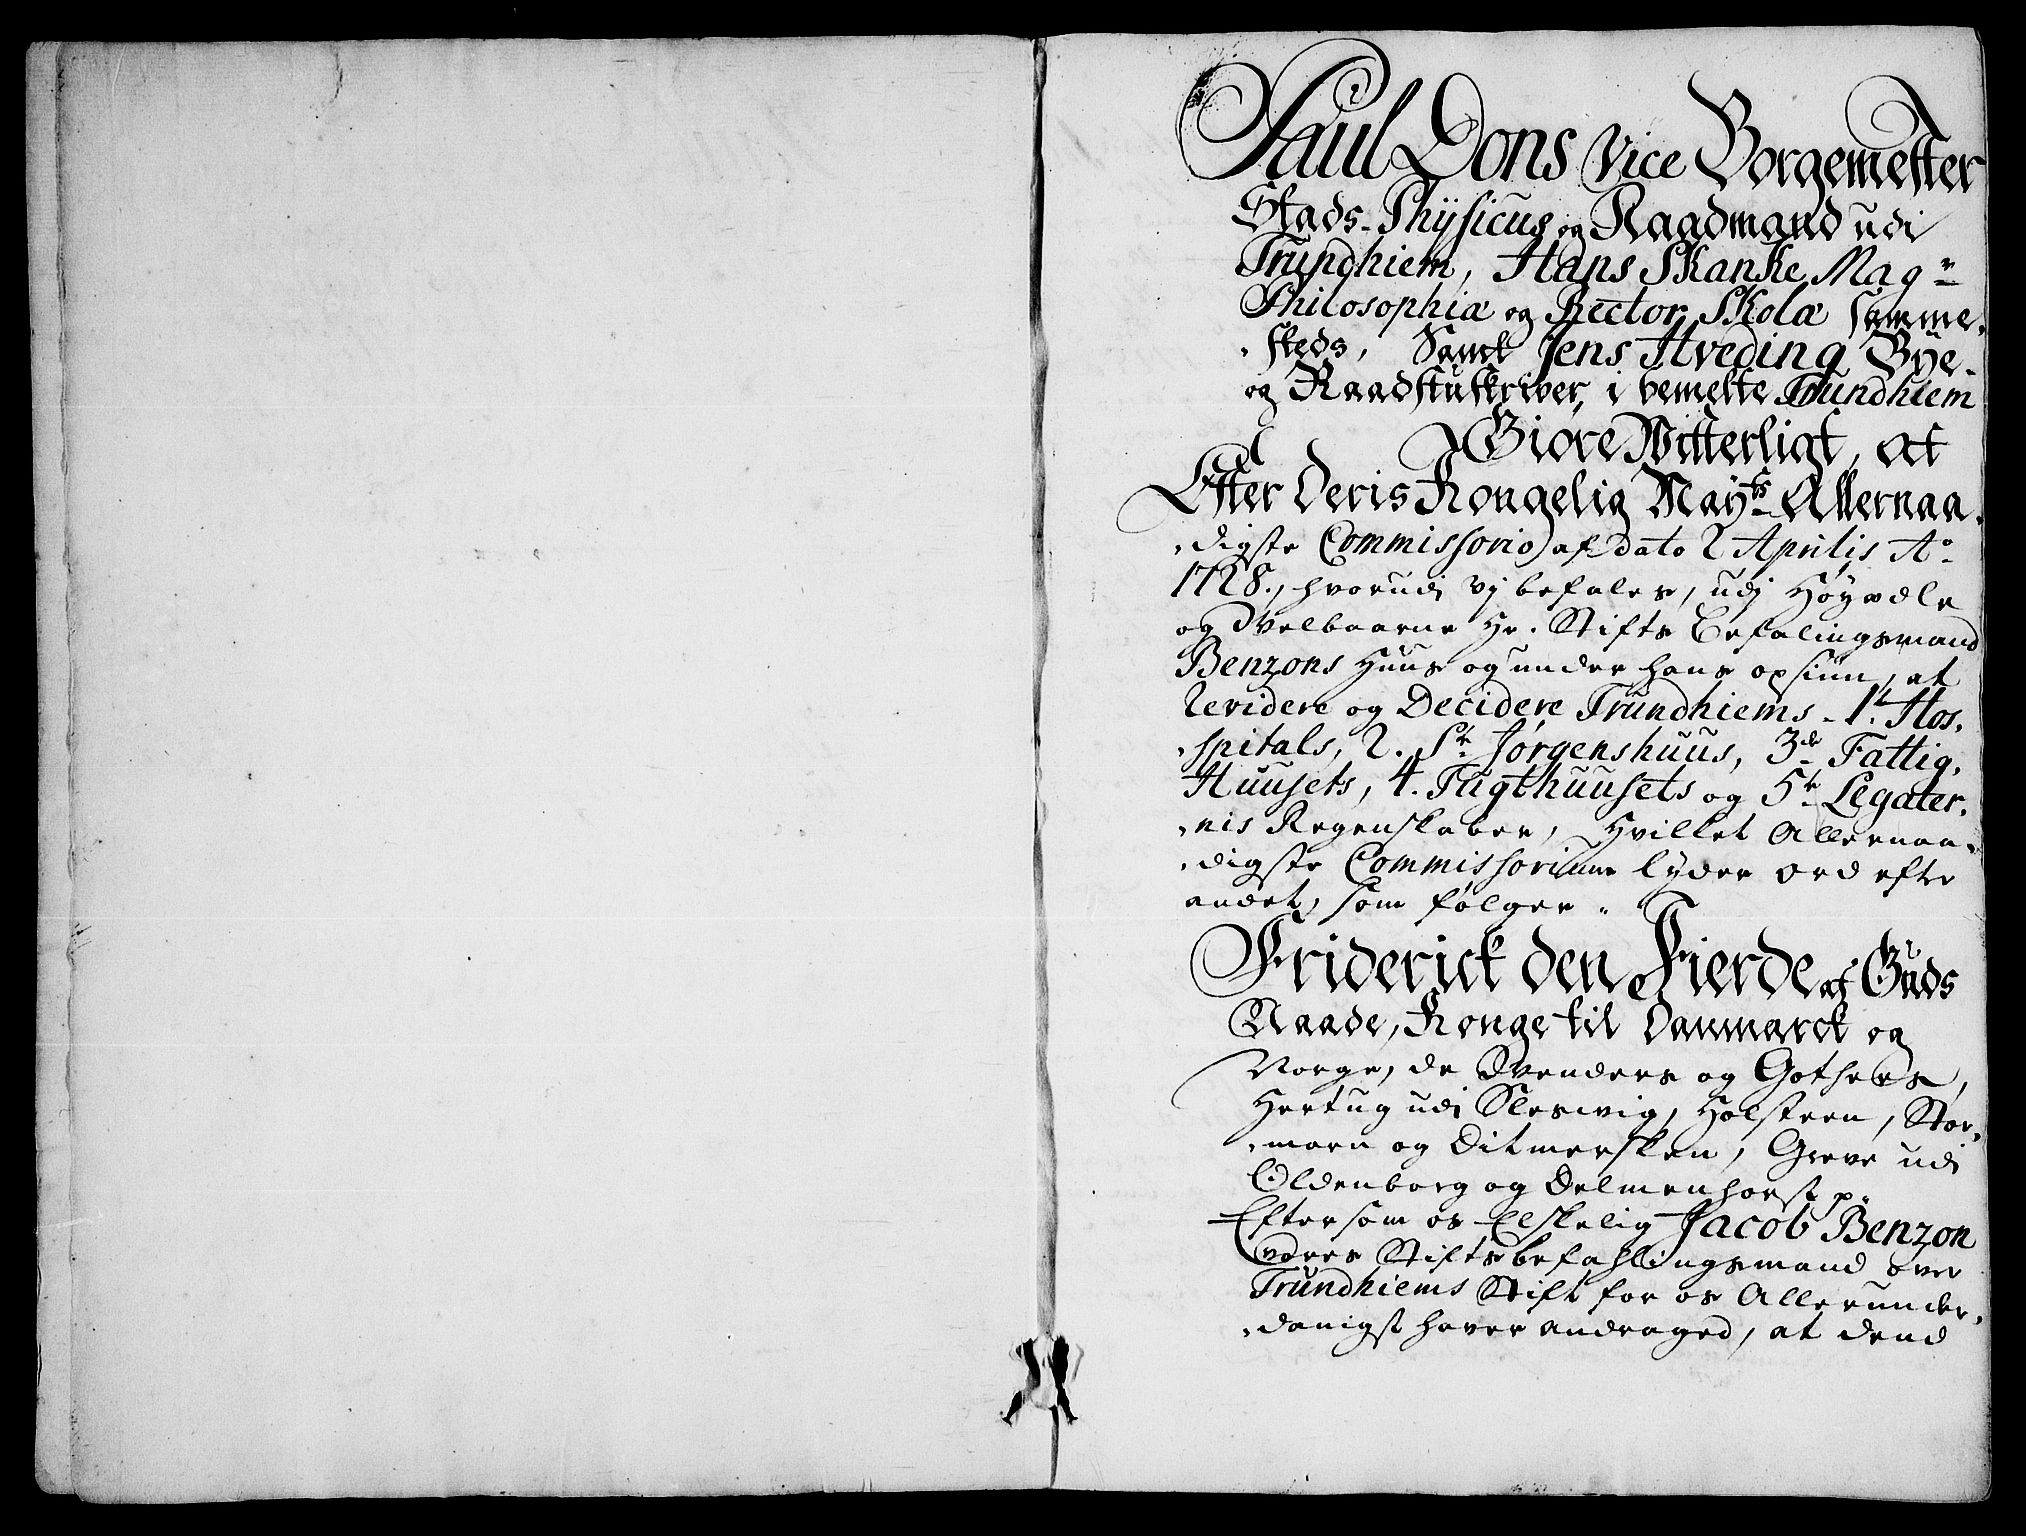 Paul Dons Vice Borgemester
Stads-Physicus og Raadmand udi
Trundhiem, Hans Skanke Magr
Philosophiæ og Rector Skolæ samme,
,steds, Samt Jens Hveding Bye-
og Raadstuskriver, i bemelte Trundhiem
Giøre Witterligt, at
Efter Deris Kongelig Mayts Allernaa,
,digste Commissorio af dato 2 Aprilis Ao
1728., hvorudi vj befales, udj Høyædle
og Velbaarne Hr. Stifts Befalingsmand
Benzons Huus og under hans opsiun, at
Revidere og Decidere Trundhiems - 1t Hos,
,spitals, 2. St Jørgenshuus, 3de Fattig,
Huusets, 4. Tugthuusets og 5te Legater,
,nis Regenskaber, Hvilket Allernaa,
,digste Commissorium lyder ord efter
andet, som følger.
Friderick den Fierde af Guds
Naade, Konge til Danmarck og
Norge, de Venders og Gothers,
Hertug udi Slesvig, Holsteen, Stor,
,marn og Ditmersken, Greve udi
Oldenborg og Delmenhorst p.
Eftersom os Elskelig Jacob Benzon
vores Stiftsbefahlingsmand over
Trundhiems Stift for os Allerunder,
,danigst haver andraged, at dend